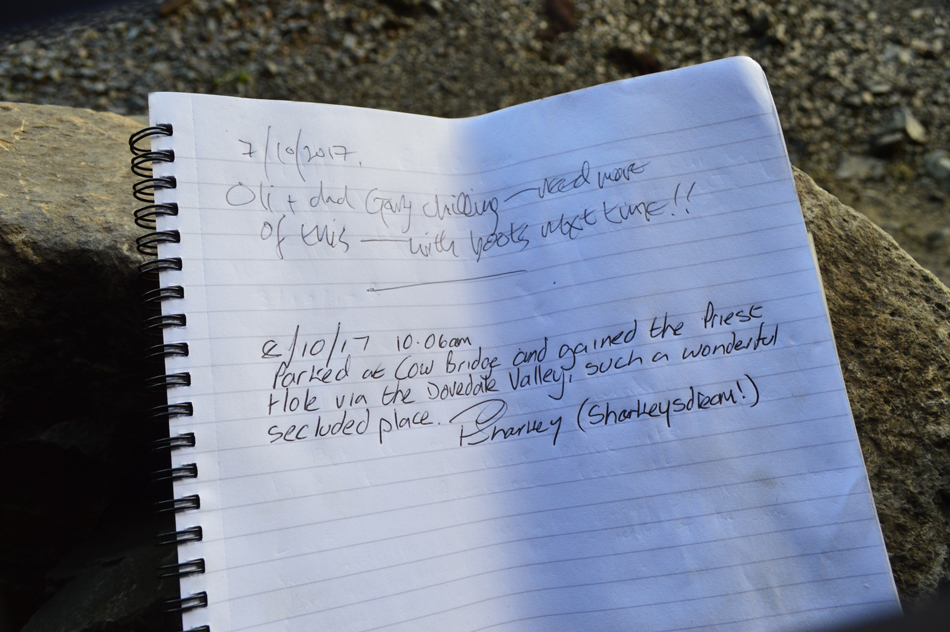 7/10/2017.
Oli + dad Gary chilling — need more
of this — with boots next time!!
8/10/17 10.06am
Parked at Cow Bridge and gained the Priest
Hole via the Dovedale Valley, such a wonderful
secluded place. PSharkey (Sharkeysdream!)